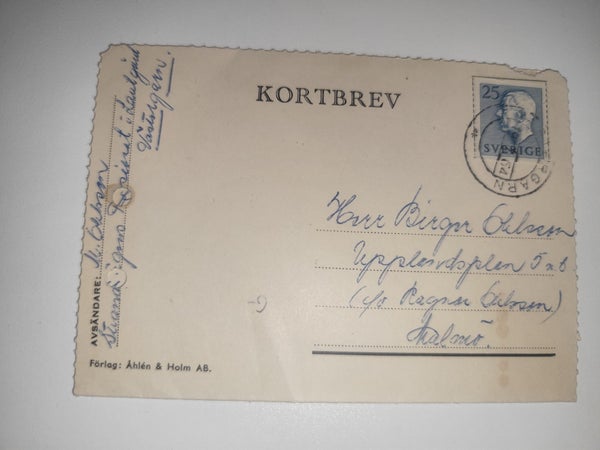 KORTBREV
25
SVERIGE
GARN
Herr Birger Ohlsson
Upplandsplan 5
c/o Ragnar Ohlsson
Malmö.
AVSÄNDARE: M. Ohlsson
Strand
Västergarn.
Förlag: Åhlén & Holm AB.